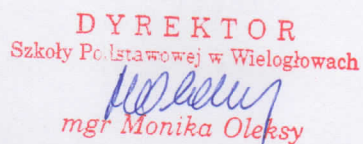 DYREKTOR
Szkoły Podstawowej w Wielogłowach
mgr Monika Oleksy